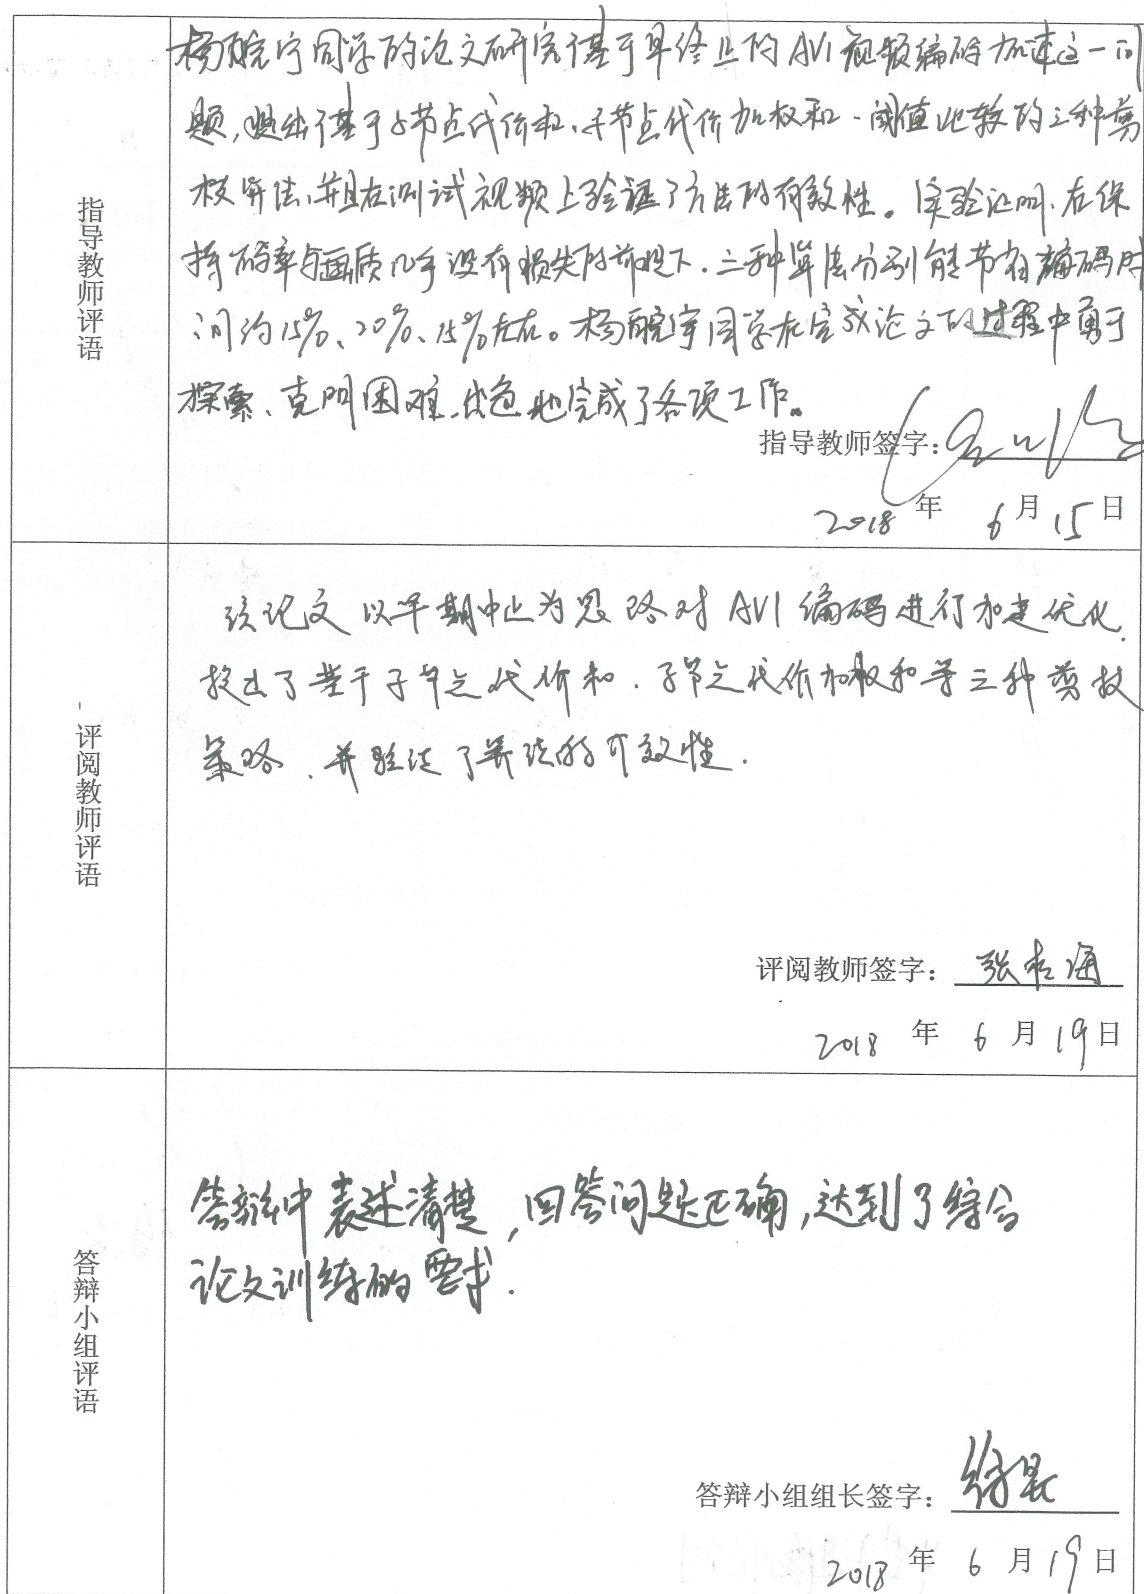 指导教师评语
杨皖宁同学的论文研究了基于早终止的AV1视频编码加速这一问
题,提出了基于子节点代价和、子节点代价加权和、阈值比较的三种剪
枝算法,并且在测试视频上验证了方法的有效性。实验证明,在保
持码率与画质几乎没有损失的前提下,三种算法分别能节省编码时
间约15%、20%、15%左右。杨皖宁同学在完成论文的过程中勇于
探索、克服困难,出色地完成了各项工作。
指导教师签字:
2018 年 6 月 15 日
评阅教师评语
该论文以早期中止为思路对AV1编码进行加速优化,
提出了基于子节点代价和、子节点代价加权和等三种剪枝
策略,并验证了算法的有效性.
评阅教师签字: 张松海
2018 年 6 月 19 日
答辩小组评语
答辩中表述清楚,回答问题正确,达到了综合
论文训练的要求.
答辩小组组长签字: 徐昆
2018 年 6 月 19 日